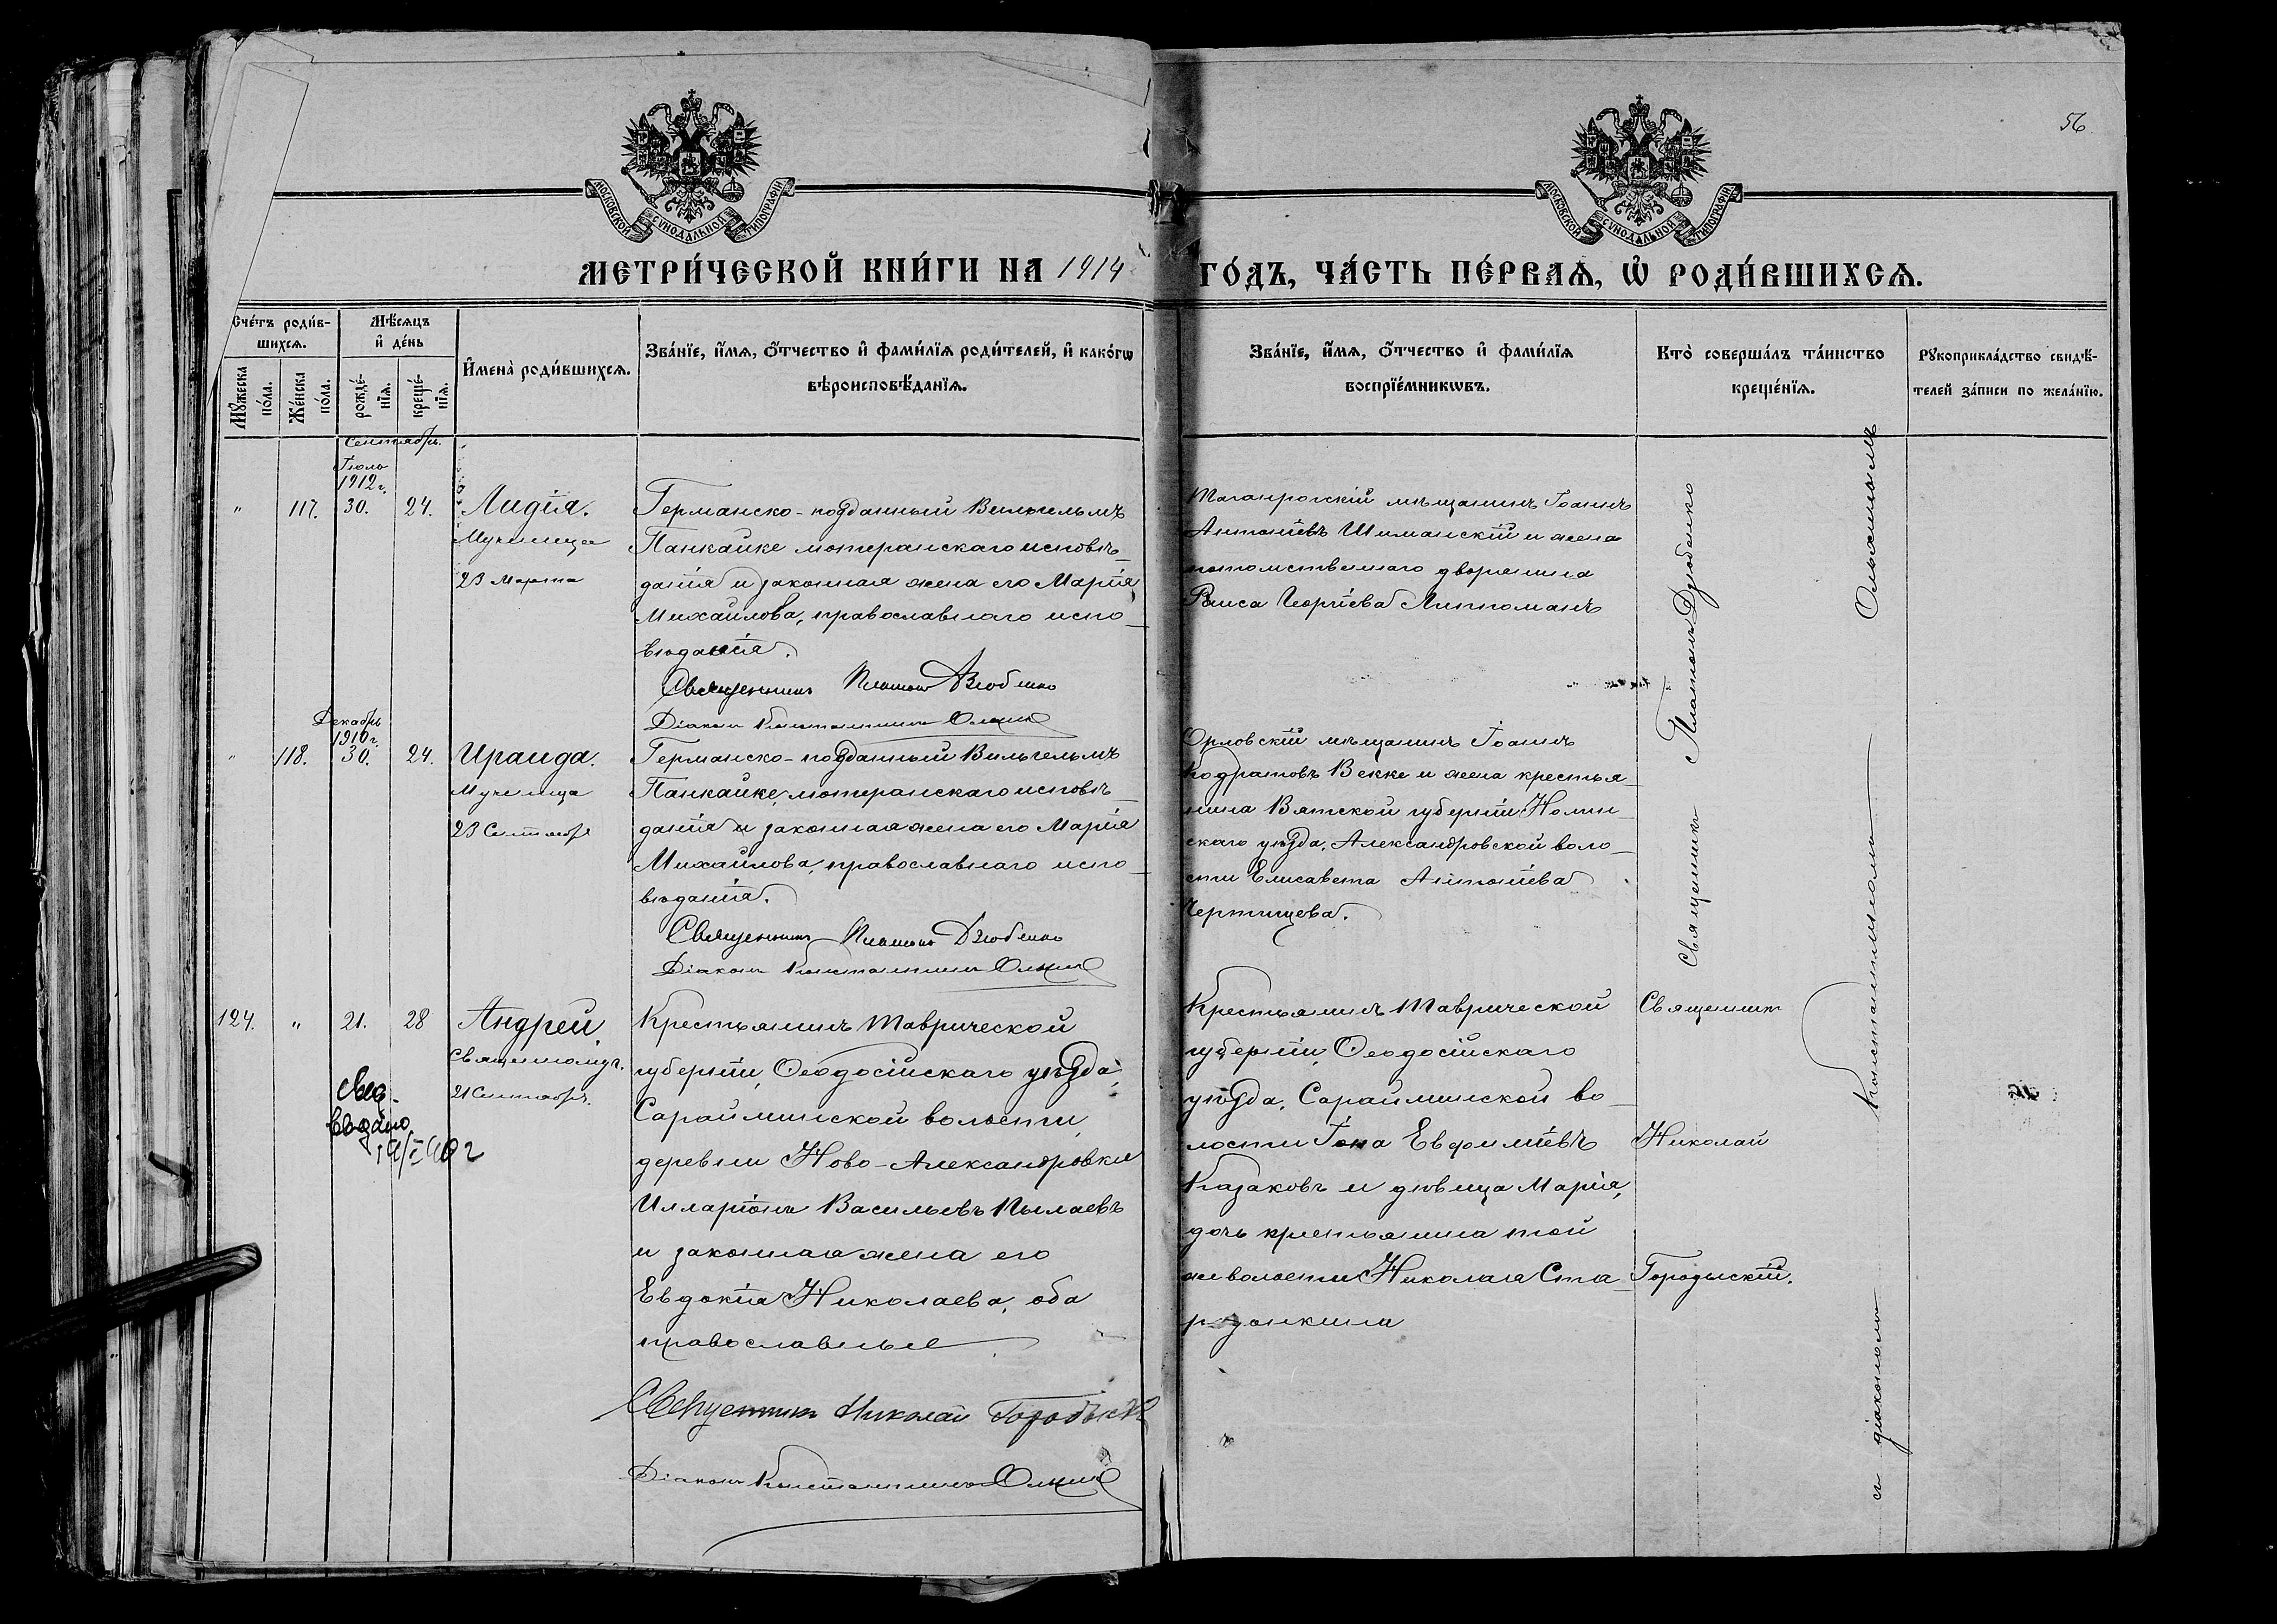 56
МОСКОВСКОЙ СѴНОДАЛЬНОЙ ТИПОГРАФІИ
МОСКОВСКОЙ СѴНОДАЛЬНОЙ ТИПОГРАФІИ
МЕТРИ́ЧЕСКОЙ КНИ́ГИ НА 1914 ГО́ДЪ, ЧА́СТЬ ПЕ́РВАѦ, Ѡ҆ РОДИ́ВШИХСѦ.
Сче́тъ роди́в-
шихсѧ.
Мꙋ́жеска
по́ла.
Же́нска
по́ла.
Мѣ́сѧцъ
и҆ де́нь
рожде́-
нїѧ.
креще́-
нїѧ.
И҆мена̀ роди́вшихсѧ.
Зва́нїе, и҆́мѧ, ѻ҆́тчество и҆ фами́лїѧ роди́телей, и҆ како́гѡ
вѣроисповѣ́данїѧ.
Зва́нїе, и҆́мѧ, ѻ҆́тчество и҆ фами́лїѧ
воспрїе́мникѡвъ.
Кто̀ соверша́лъ та́инство
креще́нїѧ.
Рꙋкоприкла́дство свидѣ́-
телей за́писи по жела́нїю.
Сентябрь.
Іюль
1912 г.
" 117. 30. 24.
Лидія.
Мученица
23 Марта
Германско-подданный Вильгельмъ
Панкайке лютеранскаго исповѣ-
данія и законная жена его Марія
Михайлова, православнаго испо-
вѣданія.
Священникъ Платонъ Дзюбенко
Діаконъ Константинъ
Таганрогскій мѣщанинъ Іоаннъ
Антоніевъ Шиманскій и жена
потомственнаго дворянина
Раиса Георгіева Липпоманъ
Декабрь
1910 г.
" 118. 30. 24.
Ираида.
Мученица
23 Сентября
Германско-подданный Вильгельмъ
Панкайке, лютеранскаго исповѣ-
данія и законная жена его Марія
Михайлова, православнаго испо-
вѣданія.
Священникъ Платонъ Дзюбенко
Діаконъ Константинъ
Орловскій мѣщанинъ Іоаннъ
Кодратовъ Векке и жена крестья-
нина Вятской губерніи Нолин-
скаго уѣзда, Александровской воло-
сти Елисавета Антоніева
Чертищева.
Священникъ Платонъ Дзюбенко
124. " 21. 28
Андрей.
Священномуч.
21 Сентябрь.
Крестьянинъ Таврической
губерніи, Ѳеодосійскаго уѣзда,
Сарайминской волости,
деревни Ново-Александровки
Илларіонъ Васильевъ Пылаевъ
и законная жена его
Евдокія Николаева, оба
православные
Священникъ Николай Городыскій
Діаконъ Константинъ
Крестьянинъ Таврической
губерніи, Ѳеодосійскаго
уѣзда, Сарайминской во-
лости Іона Евфиміевъ
Казаковъ и дѣвица Марія,
дочь крестьянина той
же волости Николая Ста-
Священникъ
Николай
Городыскій.
съ діакономъ Константиномъ